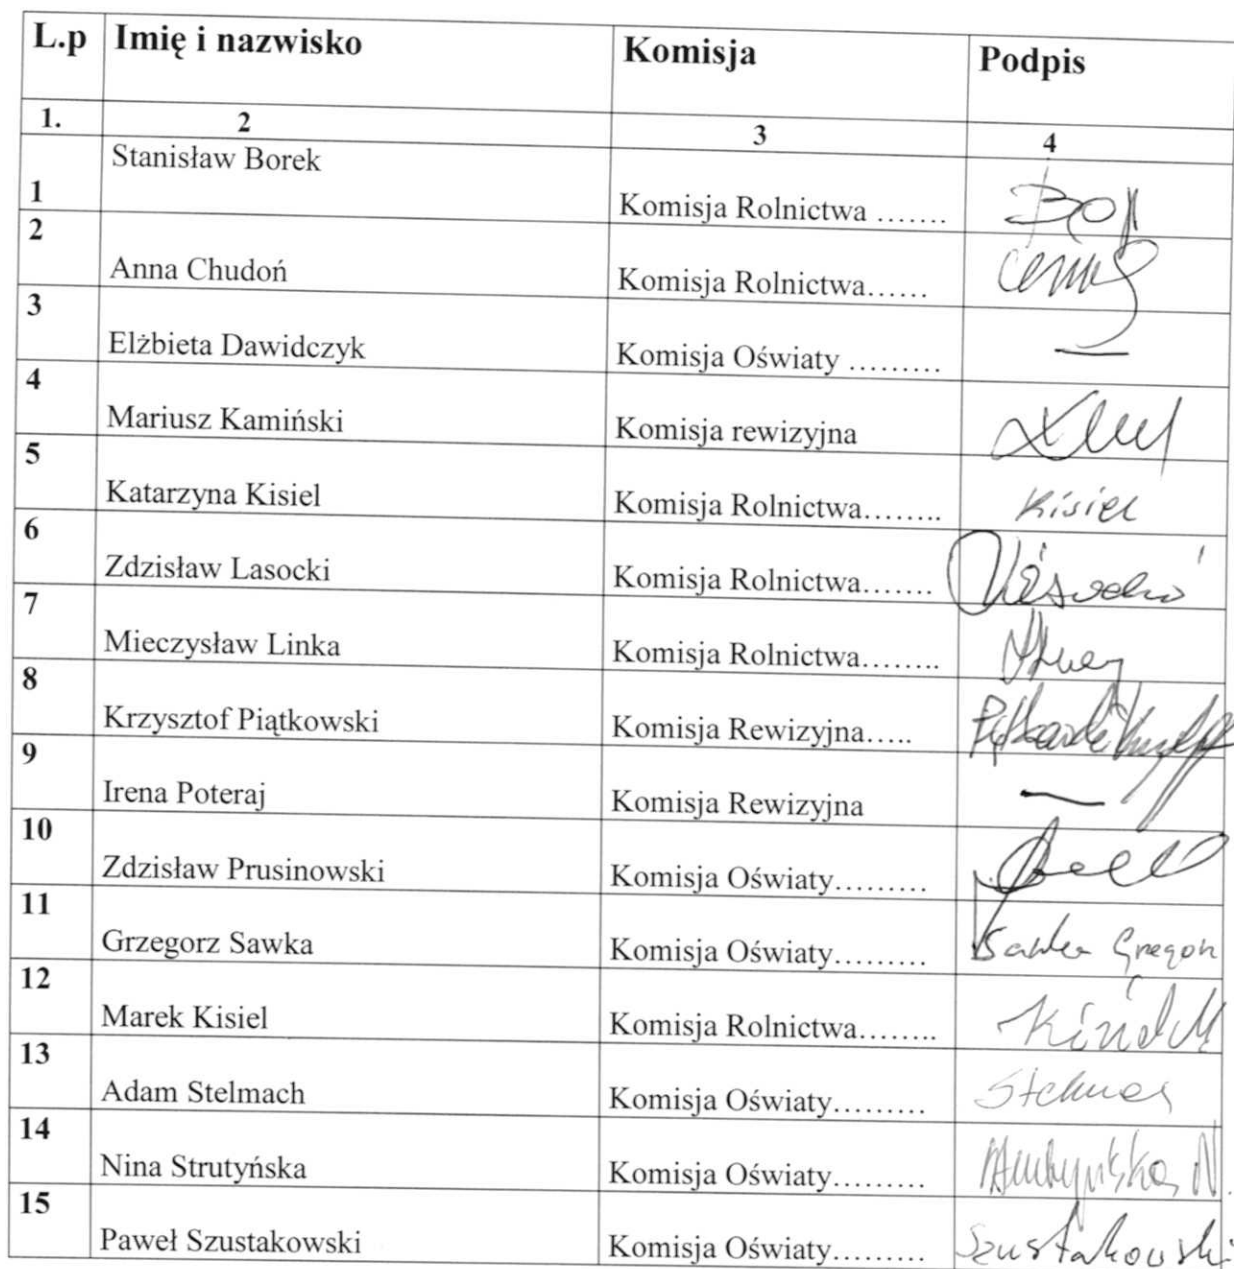 L.p Imię i nazwisko Komisja Podpis
1. 2 3 4
1 Stanisław Borek Komisja Rolnictwa .......
2 Anna Chudoń Komisja Rolnictwa......
3 Elżbieta Dawidczyk Komisja Oświaty ......... —
4 Mariusz Kamiński Komisja rewizyjna
5 Katarzyna Kisiel Komisja Rolnictwa........ Kisiel
6 Zdzisław Lasocki Komisja Rolnictwa.......
7 Mieczysław Linka Komisja Rolnictwa........
8 Krzysztof Piątkowski Komisja Rewizyjna.....
9 Irena Poteraj Komisja Rewizyjna —
10 Zdzisław Prusinowski Komisja Oświaty.........
11 Grzegorz Sawka Komisja Oświaty.........
12 Marek Kisiel Komisja Rolnictwa........
13 Adam Stelmach Komisja Oświaty.........
14 Nina Strutyńska Komisja Oświaty.........
15 Paweł Szustakowski Komisja Oświaty......... Szustakowski